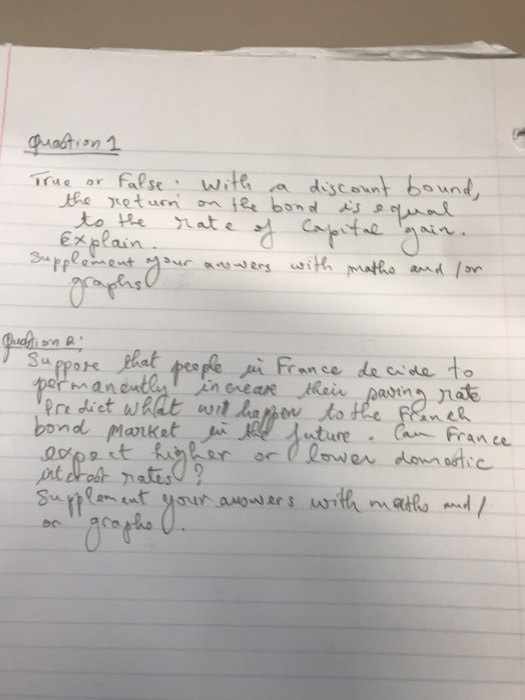 Question 1
True or False: With a discount bound,
the return on the bond is equal
to the rate of Capital gain.
Explain.
Supplement your answers with maths and/or
graphs
Question 2:
Suppose that people in France decide to
permanently increase their saving rate
Predict what will happen to the French
bond market in the future. Can France
expect higher or lower domestic
interest rates?
Supplement your answers with maths and/
or graphs.